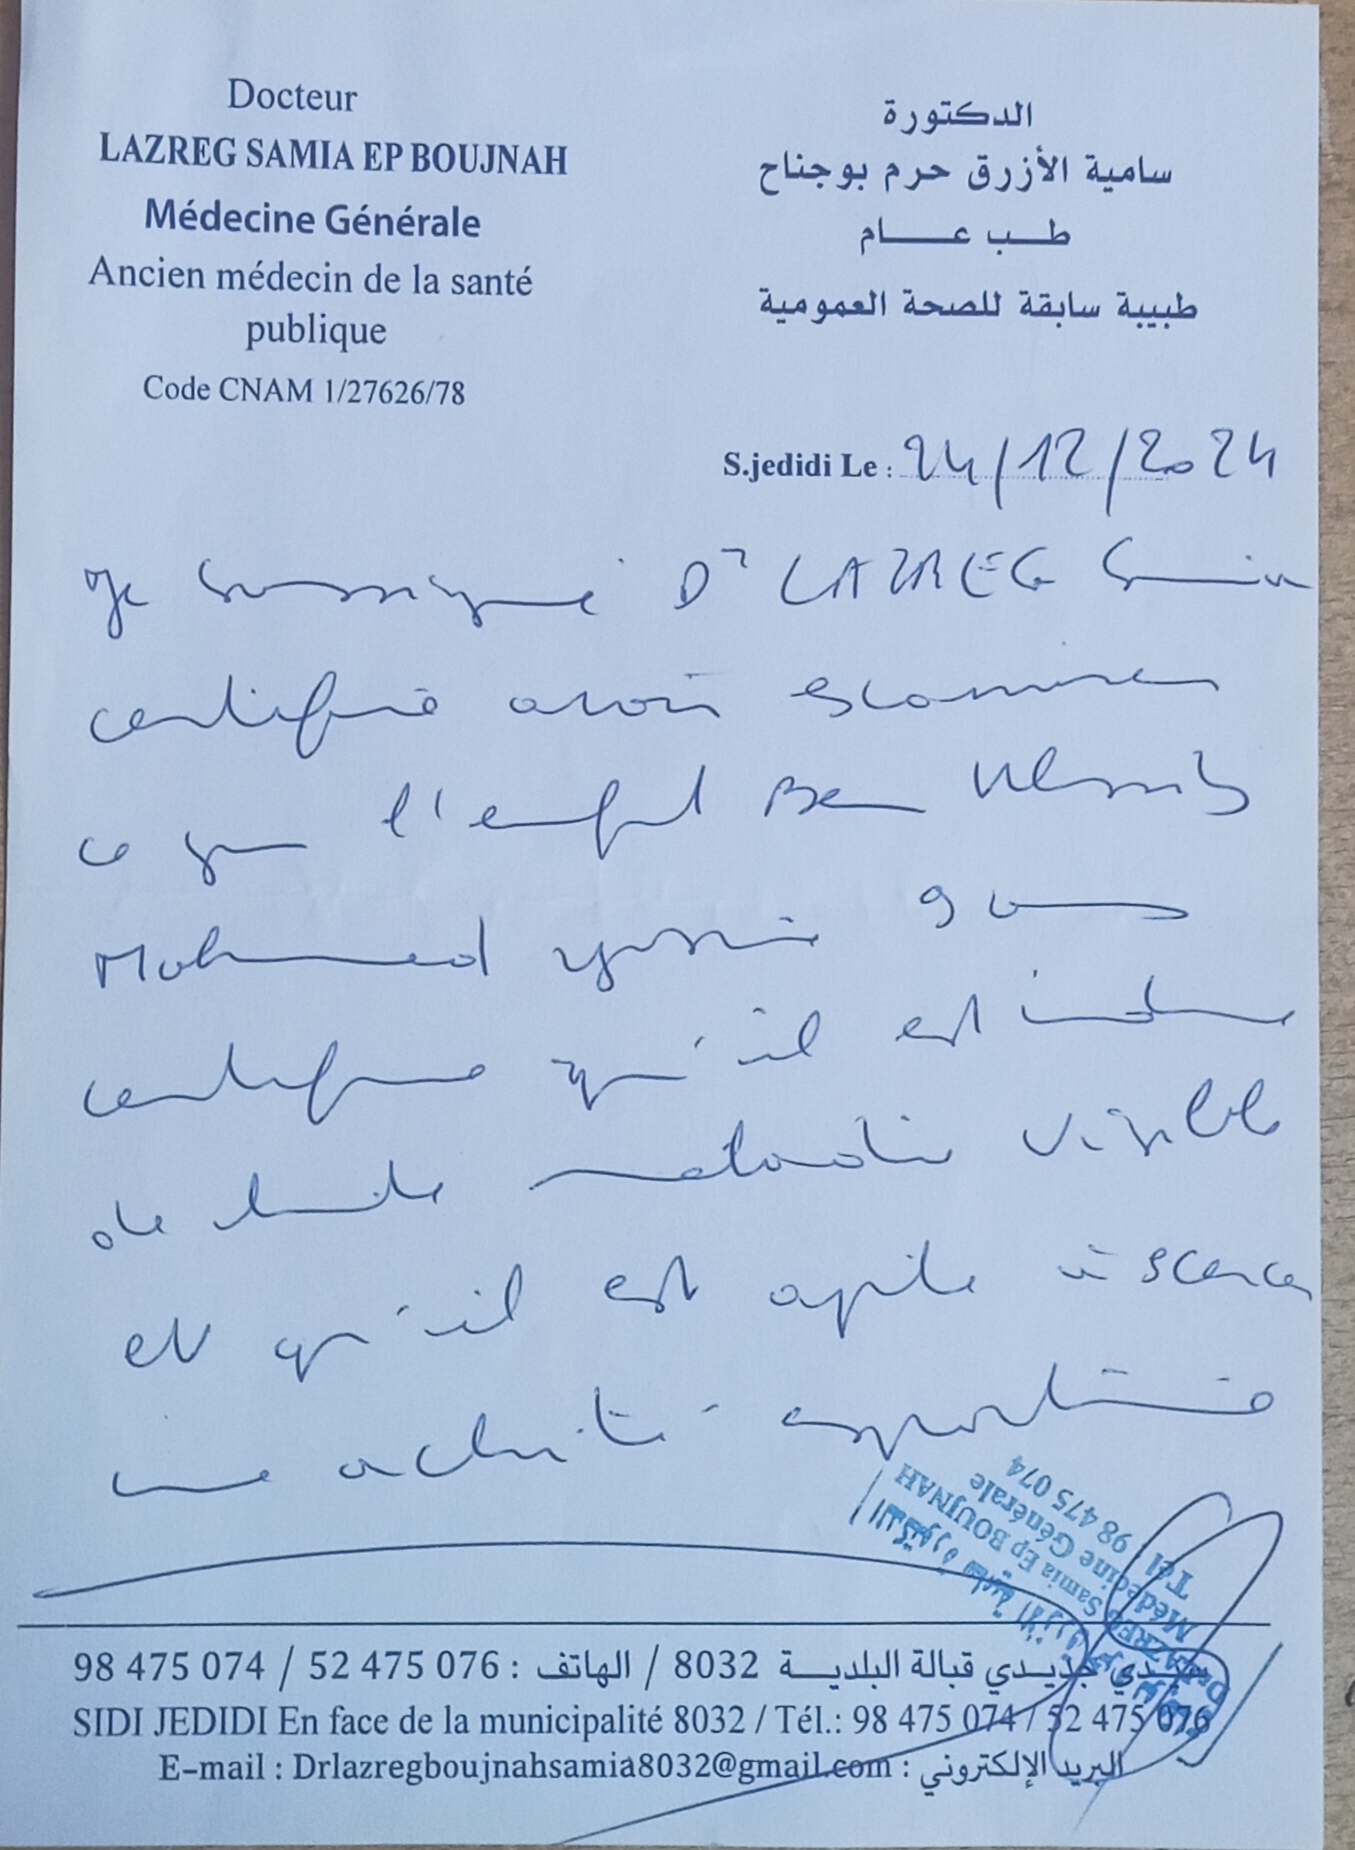 Docteur
LAZREG SAMIA EP BOUJNAH
Médecine Générale
Ancien médecin de la santé
publique
Code CNAM 1/27626/78
الدكتورة
سامية الأزرق حرم بوجناح
طب عام
طبيبة سابقة للصحة العمومية
S.jedidi Le : 24/12/2024
Je soussigné Dr LAZREG Samia
certifie avoir examiner
ce jour l'enfant Ben
Mohamed yassine 9 ans
certifie qu'il est indemne
de toute maladie visible
et qu'il est apte à exercer
une activité sportive
الدكتورة سامية الأزرق
Dr LAZREG Samia Ep BOUJNAH
Médecine Générale
Tél 98 475 074
سيدي جديدي قبالة البلدية 8032 / الهاتف : 98 475 074 / 52 475 076
SIDI JEDIDI En face de la municipalité 8032 / Tél.: 98 475 074 / 52 475 076
E-mail : Drlazregboujnahsamia8032@gmail.com : البريد الإلكتروني